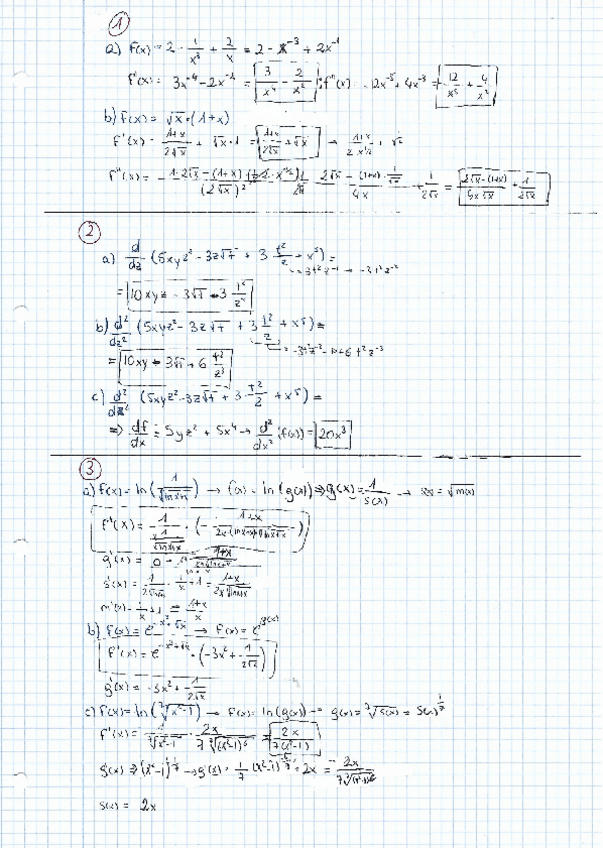 1
a) f(x) = 2 - 1/x³ + 2/x = 2 - x⁻³ + 2x⁻¹
f'(x) = 3x⁻⁴ - 2x⁻² = 3/x⁴ - 2/x² ; f''(x) = -12x⁻⁵ + 4x⁻³ = -12/x⁵ + 4/x³
b) f(x) = √x · (1+x)
f'(x) = (1+x)/(2√x) + √x · 1 = (1+x)/(2√x) + √x
f''(x) = = (2√x - (1+x))/(4x√x) + 1/(2√x)
2
a) d/dz (5xyz² - 3z√7 + 3 t²/z + x⁵) =
= 3t²z⁻¹ → -3t²z⁻²
= 10xyz - 3√7 - 3 t²/z²
b) d²/dz² (5xyz² - 3z√7 + 3 t²/z + x⁵) =
= -3t²z⁻² → +6t²z⁻³
= 10xy - 3√7 + 6 t²/z³
c) d²/dx² (5xyz² - 3z√7 + 3 · t²/z + x⁵) =
=> df/dx = 5yz² + 5x⁴ → d²/dx² (f(x)) = 20x³
3
a) f(x) = ln( ) → f(x) = ln(g(x)) => g(x) = 1/s(x) → s(x) = √m(x)
f'(x) =
g'(x) =
s'(x) =
m'(x) = 1/x + 1 = (1+x)/x
b) f(x) = e^(-x³+√x) → f(x) = e^(g(x))
f'(x) = e^(-x³+√x) · (-3x² + 1/(2√x))
g'(x) = -3x² + 1/(2√x)
c) f(x) = ln(⁷√(x²-1)) → f(x) = ln(g(x)) → g(x) = ⁷√s(x) = s(x)^(1/7)
f'(x) = 1/⁷√(x²-1) · 2x/(7 ⁷√(x²-1)⁶) = 2x/(7(x²-1))
g(x) => (x²-1)^(1/7) → g'(x) = 1/7 (x²-1)^(-6/7) · 2x = 2x/(7 ⁷√(x²-1)⁶)
s(x) = 2x